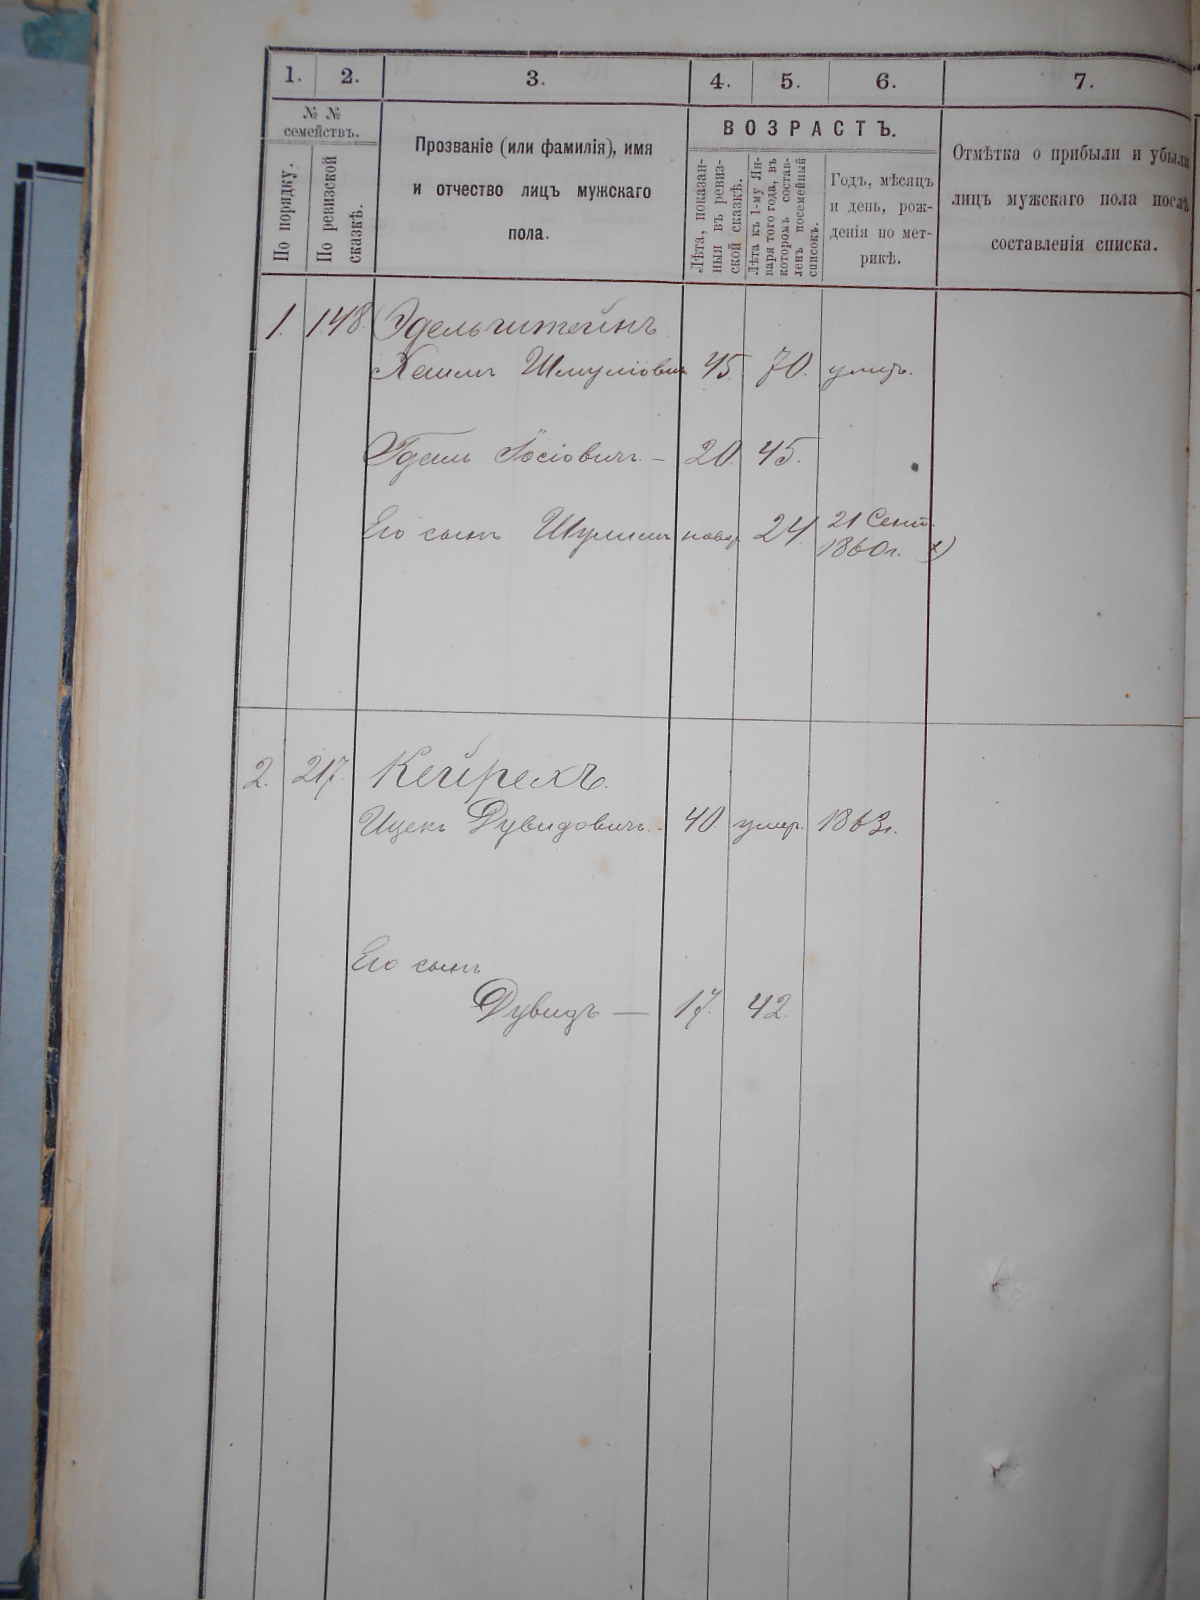 1. 2. 3. 4. 5. 6. 7.
№ №
семействъ.
По порядку.
По ревизской
сказкѣ.
Прозваніе (или фамилія), имя
и отчество лицъ мужскаго
пола.
ВОЗРАСТЪ.
Лѣта, показан-
ныя въ ревиз-
ской сказкѣ.
Лѣта къ 1-му Ян-
варя того года, въ
которомъ состав-
ленъ посемейный
списокъ.
Годъ, мѣсяцъ
и день, рож-
денія по мет-
рикѣ.
Отмѣтка о прибыли и убыли
лицъ мужскаго пола послѣ
составленія списка.
1. 148 Эдельштейнъ
Шмуліович 45 70.
Іосіовичъ — 20 45.
Его сынъ новор 24 21 Сент.
1860г. х)
2. 217. Кейрехъ.
Ицекъ Дувидовичъ. 40. умер. 1863г.
Его сынъ
Дувидъ — 17. 42.